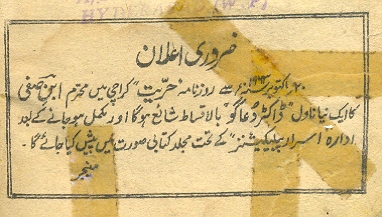 HYDERABAD (W.P.)
ضروری اعلان
۲۰ اکتوبر سنہ ۱۹۶۳ء سے روزنامہ "حریت" کراچی میں محترم ابن صفی
کا ایک نیا ناول "ڈاکٹر دعاگو" بالاقساط شائع ہوگا اور مکمل ہو جانے کے بعد
ادارہ "اسرار پبلیکیشنز" کے تحت مجلد کتابی صورت میں پیش کیا جائے گا۔
منیجر